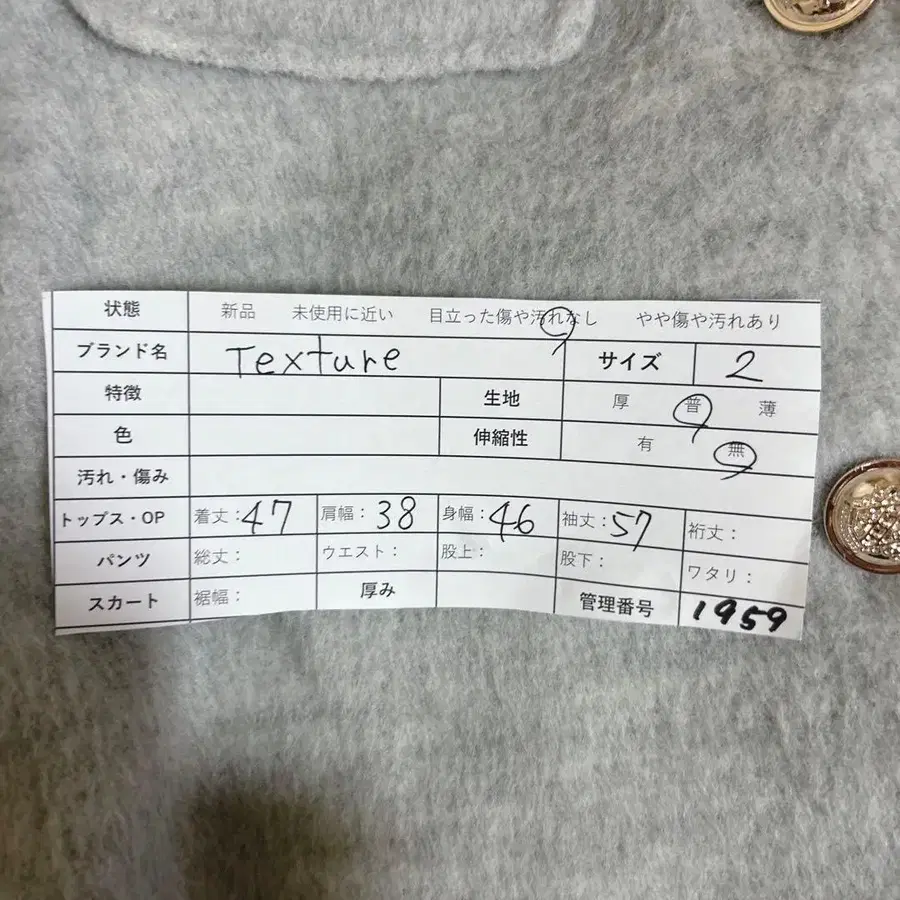 状態 新品 未使用に近い 目立った傷や汚れなし やや傷や汚れあり
ブランド名 Texture サイズ 2
特徴 生地 厚 普 薄
色 伸縮性 有 無
汚れ・傷み
トップス・OP 着丈：47 肩幅：38 身幅：46 袖丈：57 裄丈：
パンツ 総丈： ウエスト： 股上： 股下： ワタリ：
スカート 裾幅： 厚み 管理番号 1959